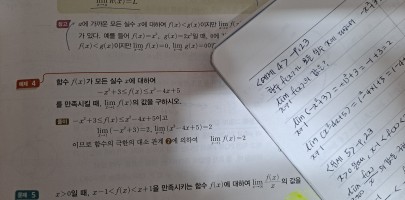 lim h(x)=L
참고 x에 가까운 모든 실수 x에 대하여 f(x)<g(x)이지만 lim f(x)
가 있다. 예를 들어 f(x)=x², g(x)=2x²일 때, 0에
f(x)<g(x)이지만 lim f(x)=0, lim g(x)=0이
예제 4 함수 f(x)가 모든 실수 x에 대하여
-x²+3≤f(x)≤x²-4x+5
를 만족시킬 때, lim f(x)의 값을 구하시오.
풀이 -x²+3≤f(x)≤x²-4x+5이고
lim(-x²+3)=2, lim(x²-4x+5)=2
이므로 함수의 극한의 대소 관계 ❷에 의하여 lim f(x)=2
문제 5 x>0일 때, x-1<f(x)<x+1을 만족시키는 함수 f(x)에 대하여 lim f(x)/x 의 값을
<예제 4> p.23
lim f(x)의 값은?
lim(-x²+3)=-1²+3=-1+3=2
lim(x²-4x+5)=1²-4×1+5=1-4
x>0일 때, x-1<f